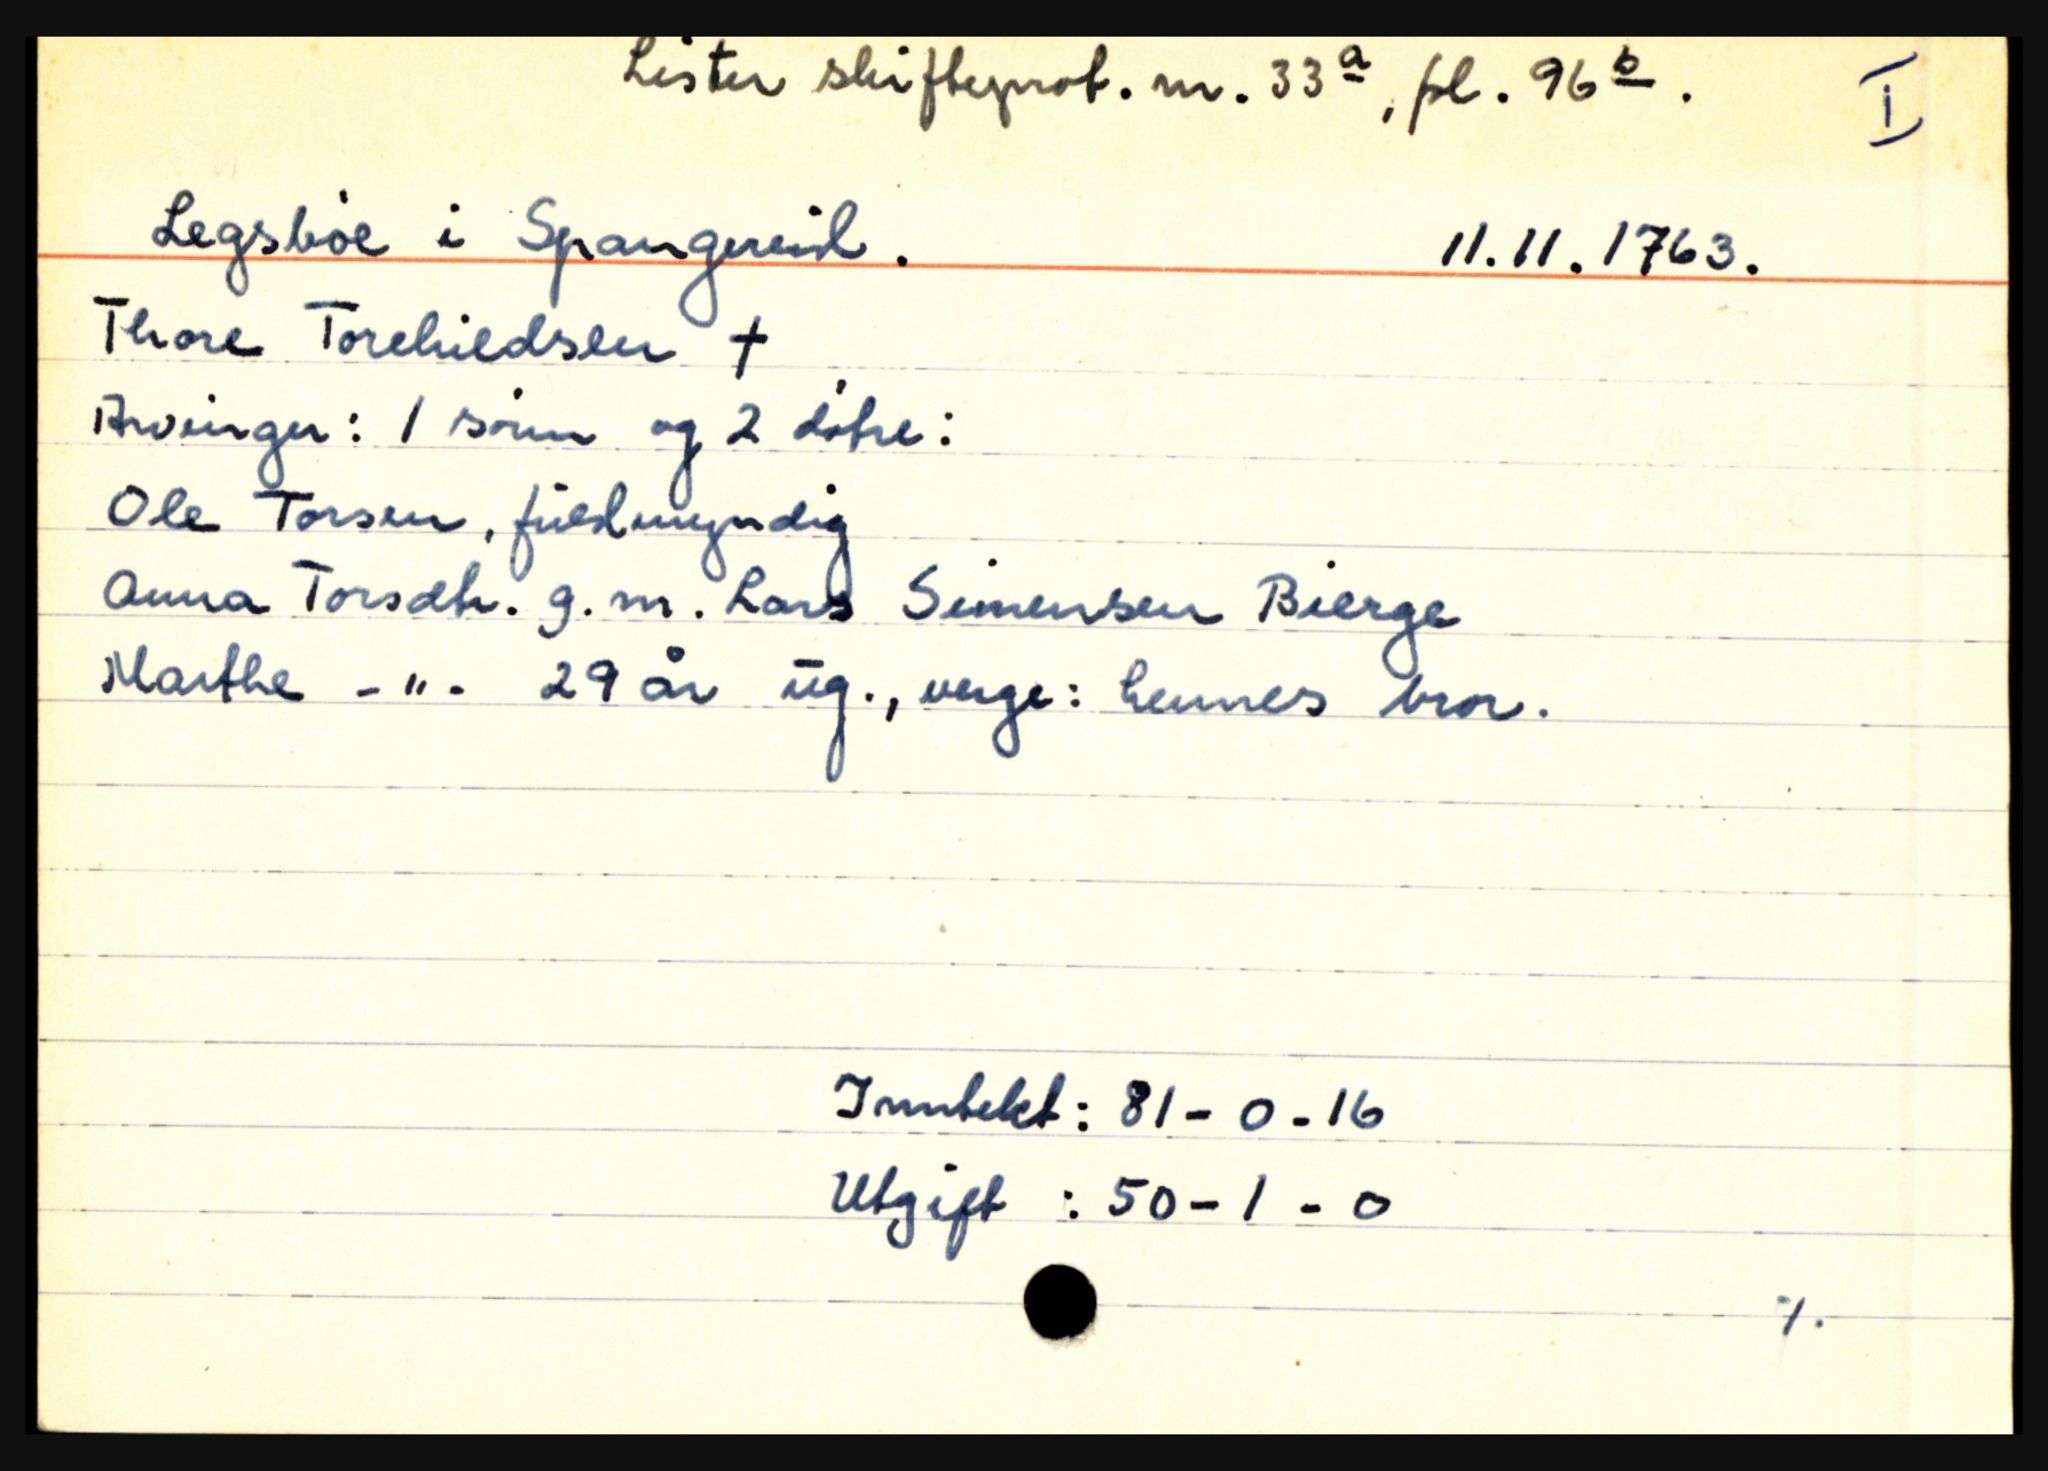 Lister skifteprot. nr. 33a, fol. 96b.
I
Legsbøe i Spangereid. 11.11.1763.
Thore Torehieldsen †
Arvinger: 1 sønn og 2 døtre:
Ole Torsen, fuldmyndig
Anna Torsdtr. g.m. Lars Simensen Bierge
Marthe -"- 29 år ug., verge: hennes bror.
Inntekt: 81-0-16
Utgift : 50-1-0